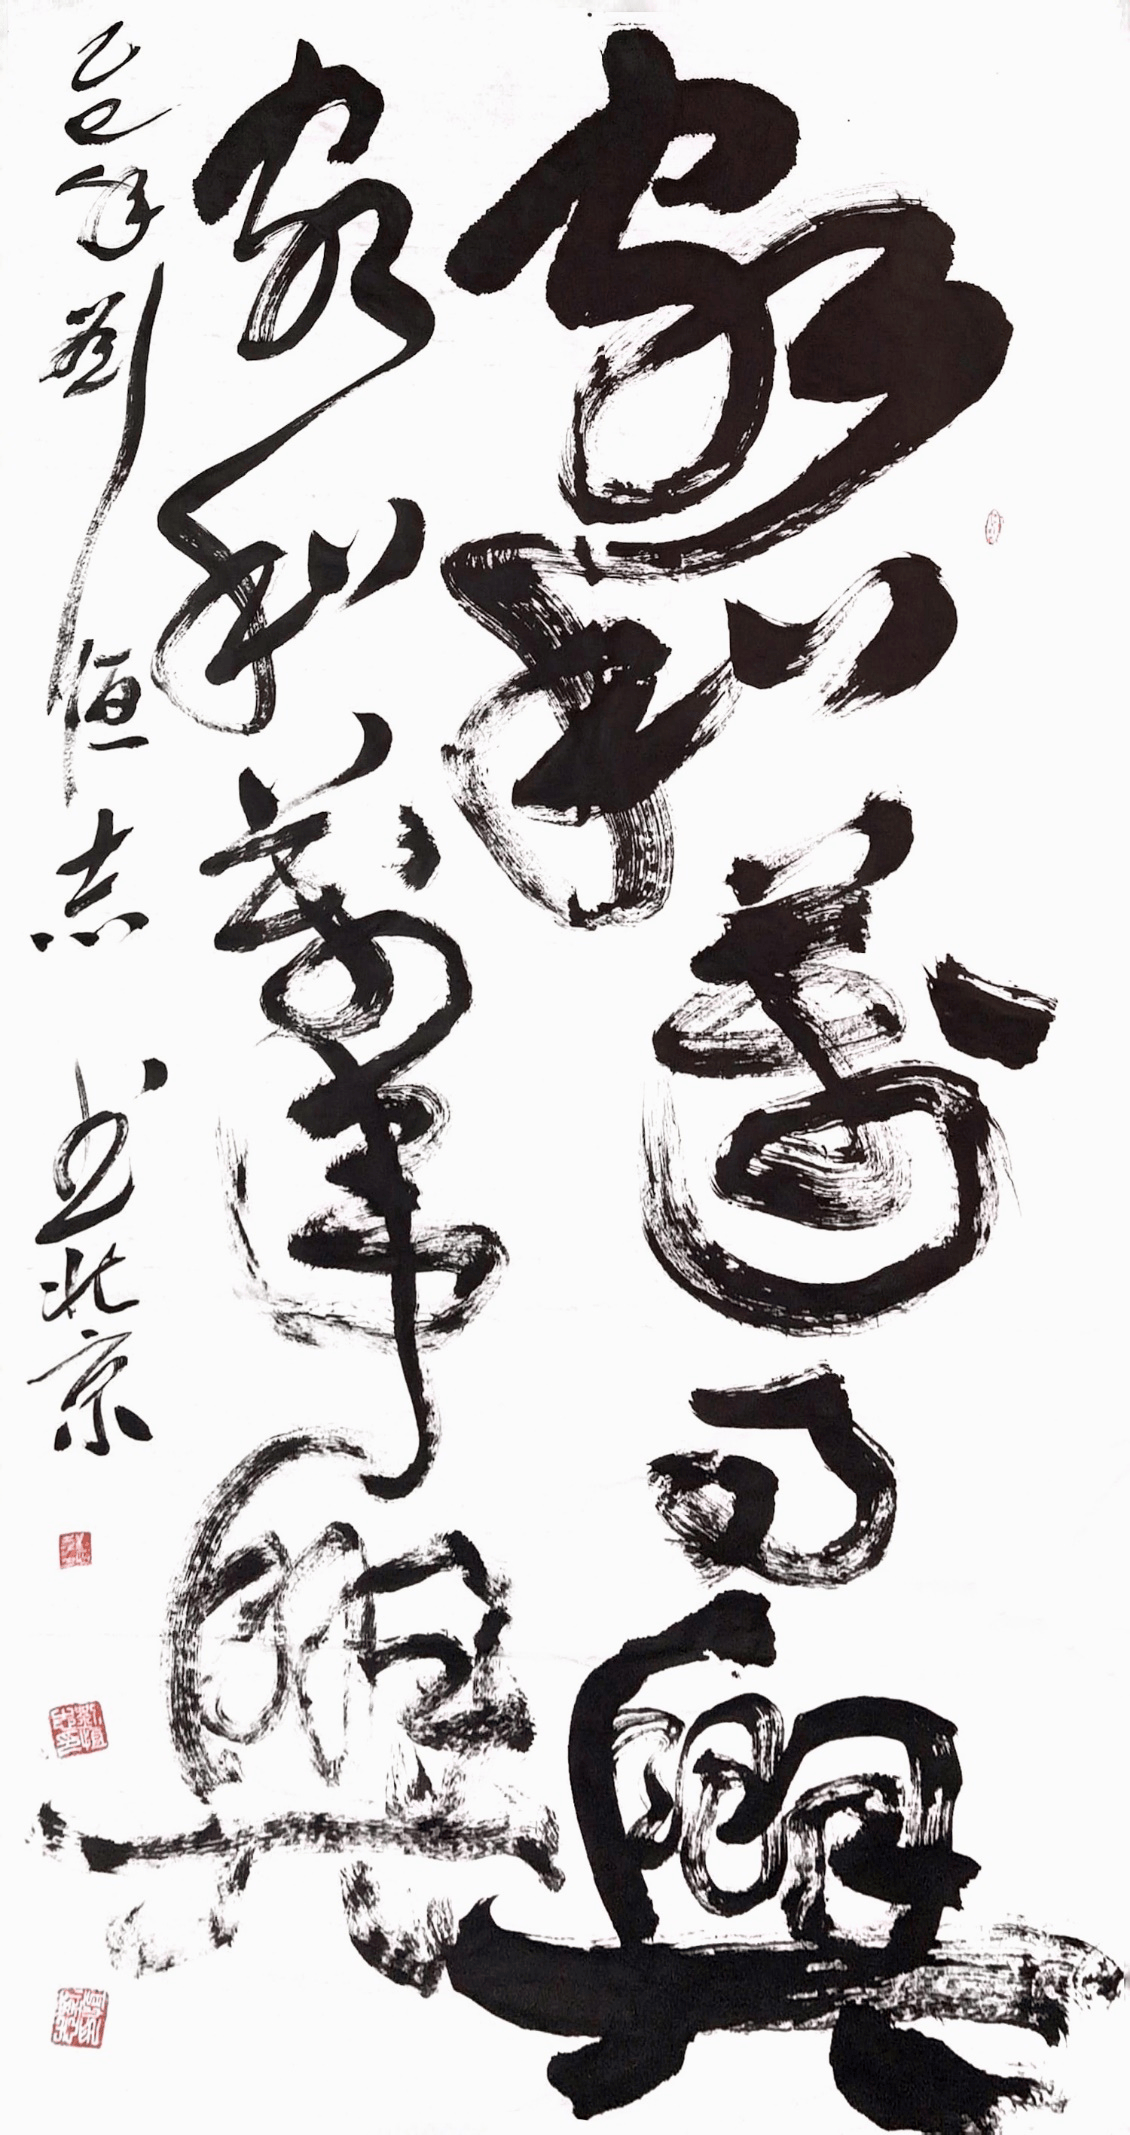 家和萬事興
家和萬事興
乙巳年劉恒志书北京